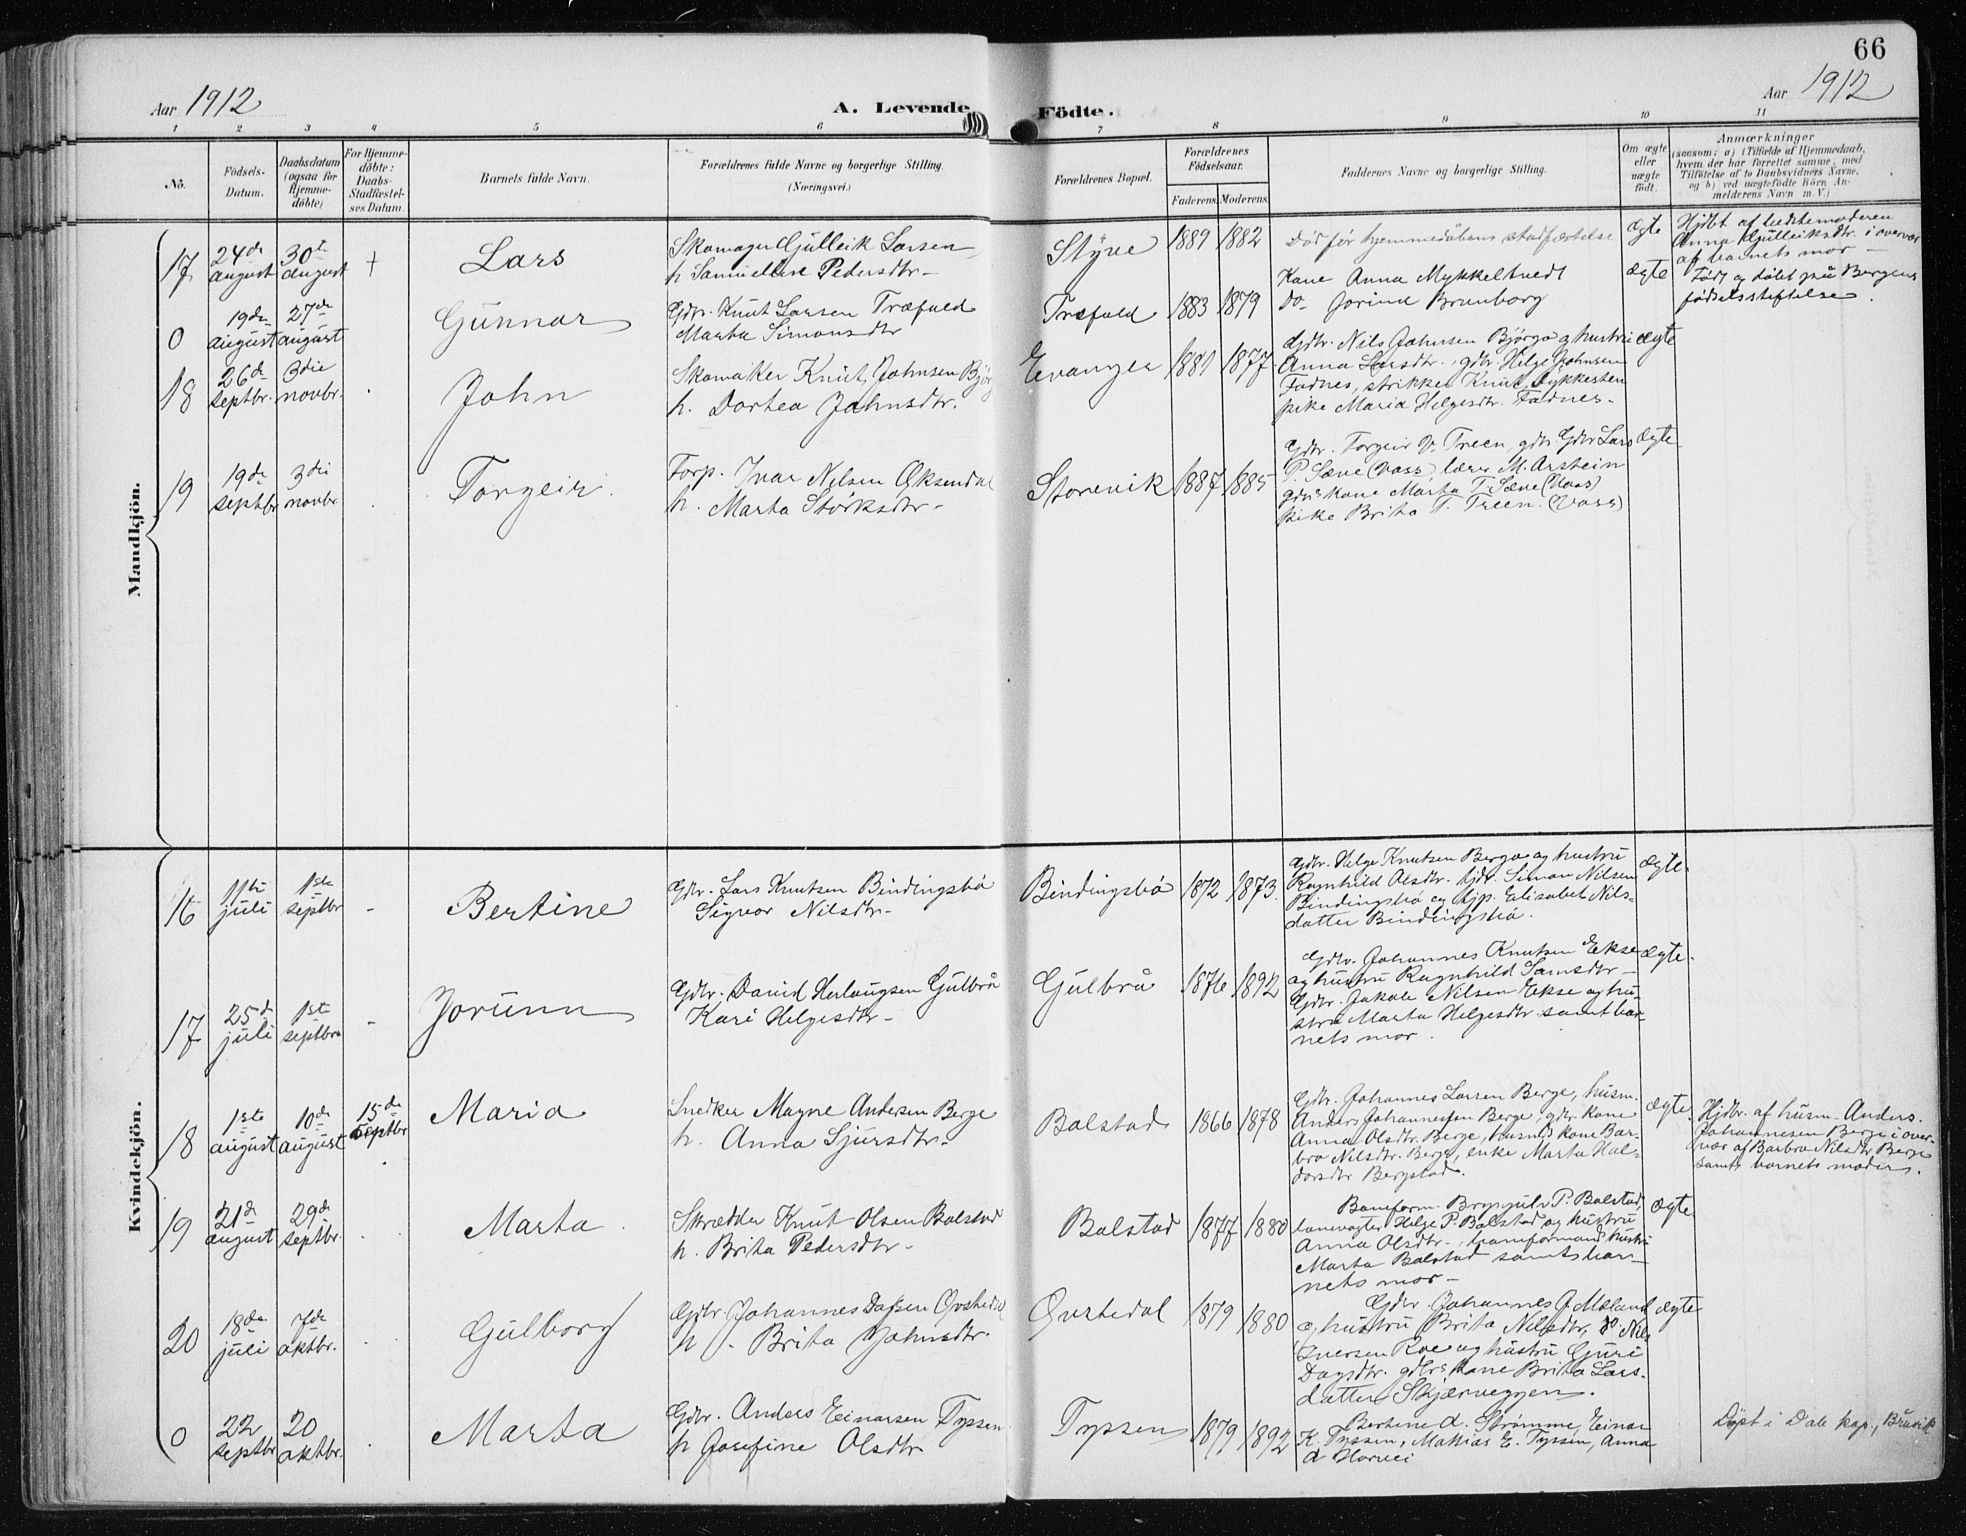 66
Aar 1912
A. Levende Födte.
Aar 1912
1 2 3 4 5 6 7 8 9 10 11
No.
Födsels-Datum.
Daabsdatum (ogsaa for Hjemme-döbte)
For Hjemme-döbte: Daabs-Stadfæstel-ses Datum.
Barnets fulde Navn.
Forældrenes fulde Navne og borgerlige Stilling.
(Næringsvei.)
Forældrenes Bopæl.
Forældrenes Födselsaar.
Faderens. Moderens.
Faddernes Navne og borgerlige Stilling.
Om ægte eller uægte födt.
Anmærkninger
(saasom: a) i Tilfælde af Hjemmedaab,
hvem der har forrettet samme, med
Tilföielse af to Daabsvidners Navne,
og b) ved uægtefödte Börn An-
melderens Navn m. V.)
Mandkjön.
17 24de august 30te august + Lars
Skomager Gulleik Larsen
h Samueline Pedersdtr-
Styve 1889 1882
Död før hjemmedåbens stadfæstelse
ægte
Hjdbt af
Anna Gulleiksdtr. i overvær
af barnets mor -
0 19de august 27de august Gunnar
Gdbr. Knut Larsen Træfald
Marta Simonsdtr
Træfald 1883 1879
Kone Anna Mykkeltvedt
Do- Jorina Brunborg
ægte
Født og døbt på Bergens
fødselsstiftelse.
18 26de septbr. 3die novbr. John
Skomaker Knut Johnsen Bjørg
h. Dortea Johnsdtr.
Evanger 1881 1877
Gdbr. Nils Johnsen Bjørgo og hustru
Anna Larsdtr. gdbr. Helge Johnsen
Fadnes, strikker Knut Lykkesten
pike Maria Helgesdtr. Fadnes-
ægte
19 19de septbr 3die novbr Torgeir.
Forp. Ivar Nilsen Øksendal
h. Marta Størksdtr-
Storevik 1887 1885
Gdbr. Torgeir V. Treen, gdbr. Lars
P. Sæve (Voss) lærer M. Arstein
gdbrs kone Marta T. Sæve (Voss)
pike Brita T. Treen. (Voss)
ægte
Kvindekjön.
16 11te juli 1ste septbr - Bertine
Gdbr. Lars Knutsen Bindingsbø
Sigvor Nilsdtr-
Bindingsbø 1872 1873.
Gdbr. Helge Knutsen Bergo og hustru
Ragnhild Olsdtr. Gdr. Simon Nilsen
Bindingsbø og Elisabet Nils-
datter Bindingsbø.
ægte.
17 25de juli 1ste septbr. - Jorunn
Gdbr. David Herlaugsen Gulbrå
Kari Helgesdtr-
Gulbrå 1876 1892
Gdbr. Johannes Knutsen Ekse
og hustru Ragnhild Samsdtr-
Gdbr. Jakob Nilsen Ekse og hu-
stru Marta Helgesdtr samt bar-
nets mor.
ægte.
18 1ste august 10de august 15de septbr Maria
Snedker Magne Andersen Berge
h. Anna Sjursdtr.
Bolstad 1866 1878
Gdbr. Johannes Larsen Berge, husm.
Anders Johannesen Berge, gdbr. kone
Anna Olsdtr. Berge, husmds kone Bar-
bro Nilsdtr. Berge, enke Marta Hal-
dorsdtr Bergstad.
ægte.
Hjdbt. af husm. Anders.
Johannesen Berge i over-
vær af Barbro Nilsdtr Berge
samt barnets moder.
19 21de august 29de septbr. Marta
Skrædder Knut Olsen Bolstad
h. Brita Pedersdtr-
Bolstad 1877 1880
Baneform. Brynjulv P. Bolstad,
banevogter Helge P. Bolstad og hustru
Anna Olsdtr., baneformands hustru
Marta Bolstad samt bar-
nets mor-
ægte
20 18de juli 7de oktbr. Gulborg
Gdbr. Johannes Dagsen Øvstedal
h. Brita Johnsdtr.
Øvstedal 1879 1880
Gdbr. Johannes J. Mæland
og hustru Brita Nilsdtr, do Nils
Iversen Roe og hustru Guri
Dagsdtr. gdbrs kone Brita Lars-
datter Skjerveggen.
ægte
0 22 septbr 20 oktbr. Marta
Gdbr. Anders Einarsen Tyssen
h Josefine Olsdtr
Tyssen 1879 1892
Bertine A. Strømme, Einar
K. Tyssen, Mathias E. Tyssen, Anna
A Horvei
Døpt i Dale kap., Bruvik